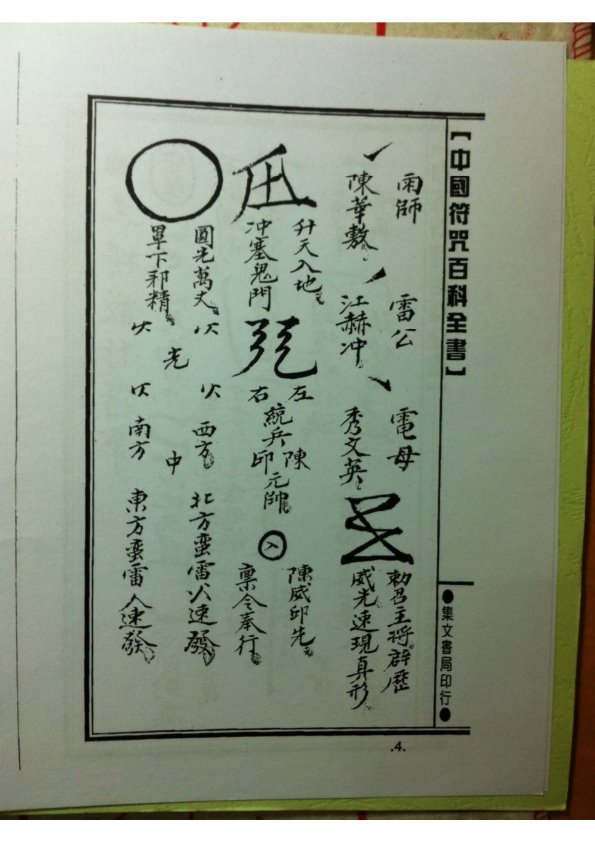 【中國符咒百科全書】
●集文書局印行●
雨師
陳華敷
雷公
江赫冲
電母
秀文英
勅召主將辟歷
威光速現真形
升天入地
冲塞鬼門
左
右
統兵
陳
印元帥
陳威卬先
稟令奉行
圓光萬丈
罩下邪精
光
西方
中
南方
北方蛮雷火速發
東方蛮雷火速發
.4.